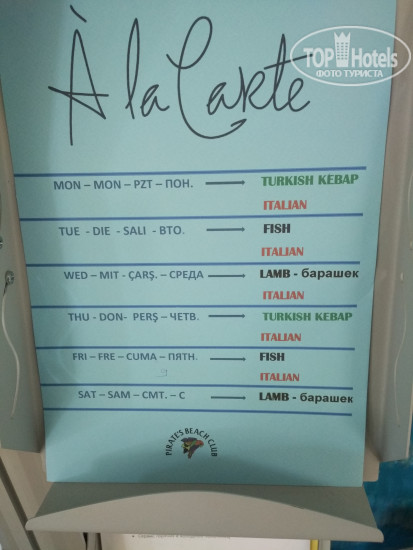 TOP Hotels
ФОТО ТУРИСТА
À la Carte
MON – MON – PZT – ПОН. TURKISH KEBAP
ITALIAN
TUE - DIE - SALI - ВТО. FISH
ITALIAN
WED – MIT - ÇARŞ. – СРЕДА LAMB - барашек
ITALIAN
THU - DON- PERŞ – ЧЕТВ. TURKISH KEBAP
ITALIAN
FRI – FRE – CUMA – ПЯТН. FISH
ITALIAN
SAT – SAM – CMT. – С LAMB - барашек
PIRATE'S BEACH CLUB